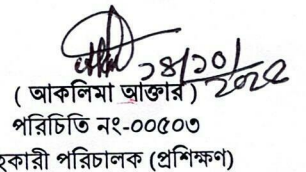 ২৪/১০/২০২৫
( আকলিমা আক্তার )
পরিচিতি নং-০০৫০৩
হকারী পরিচালক (প্রশিক্ষণ)